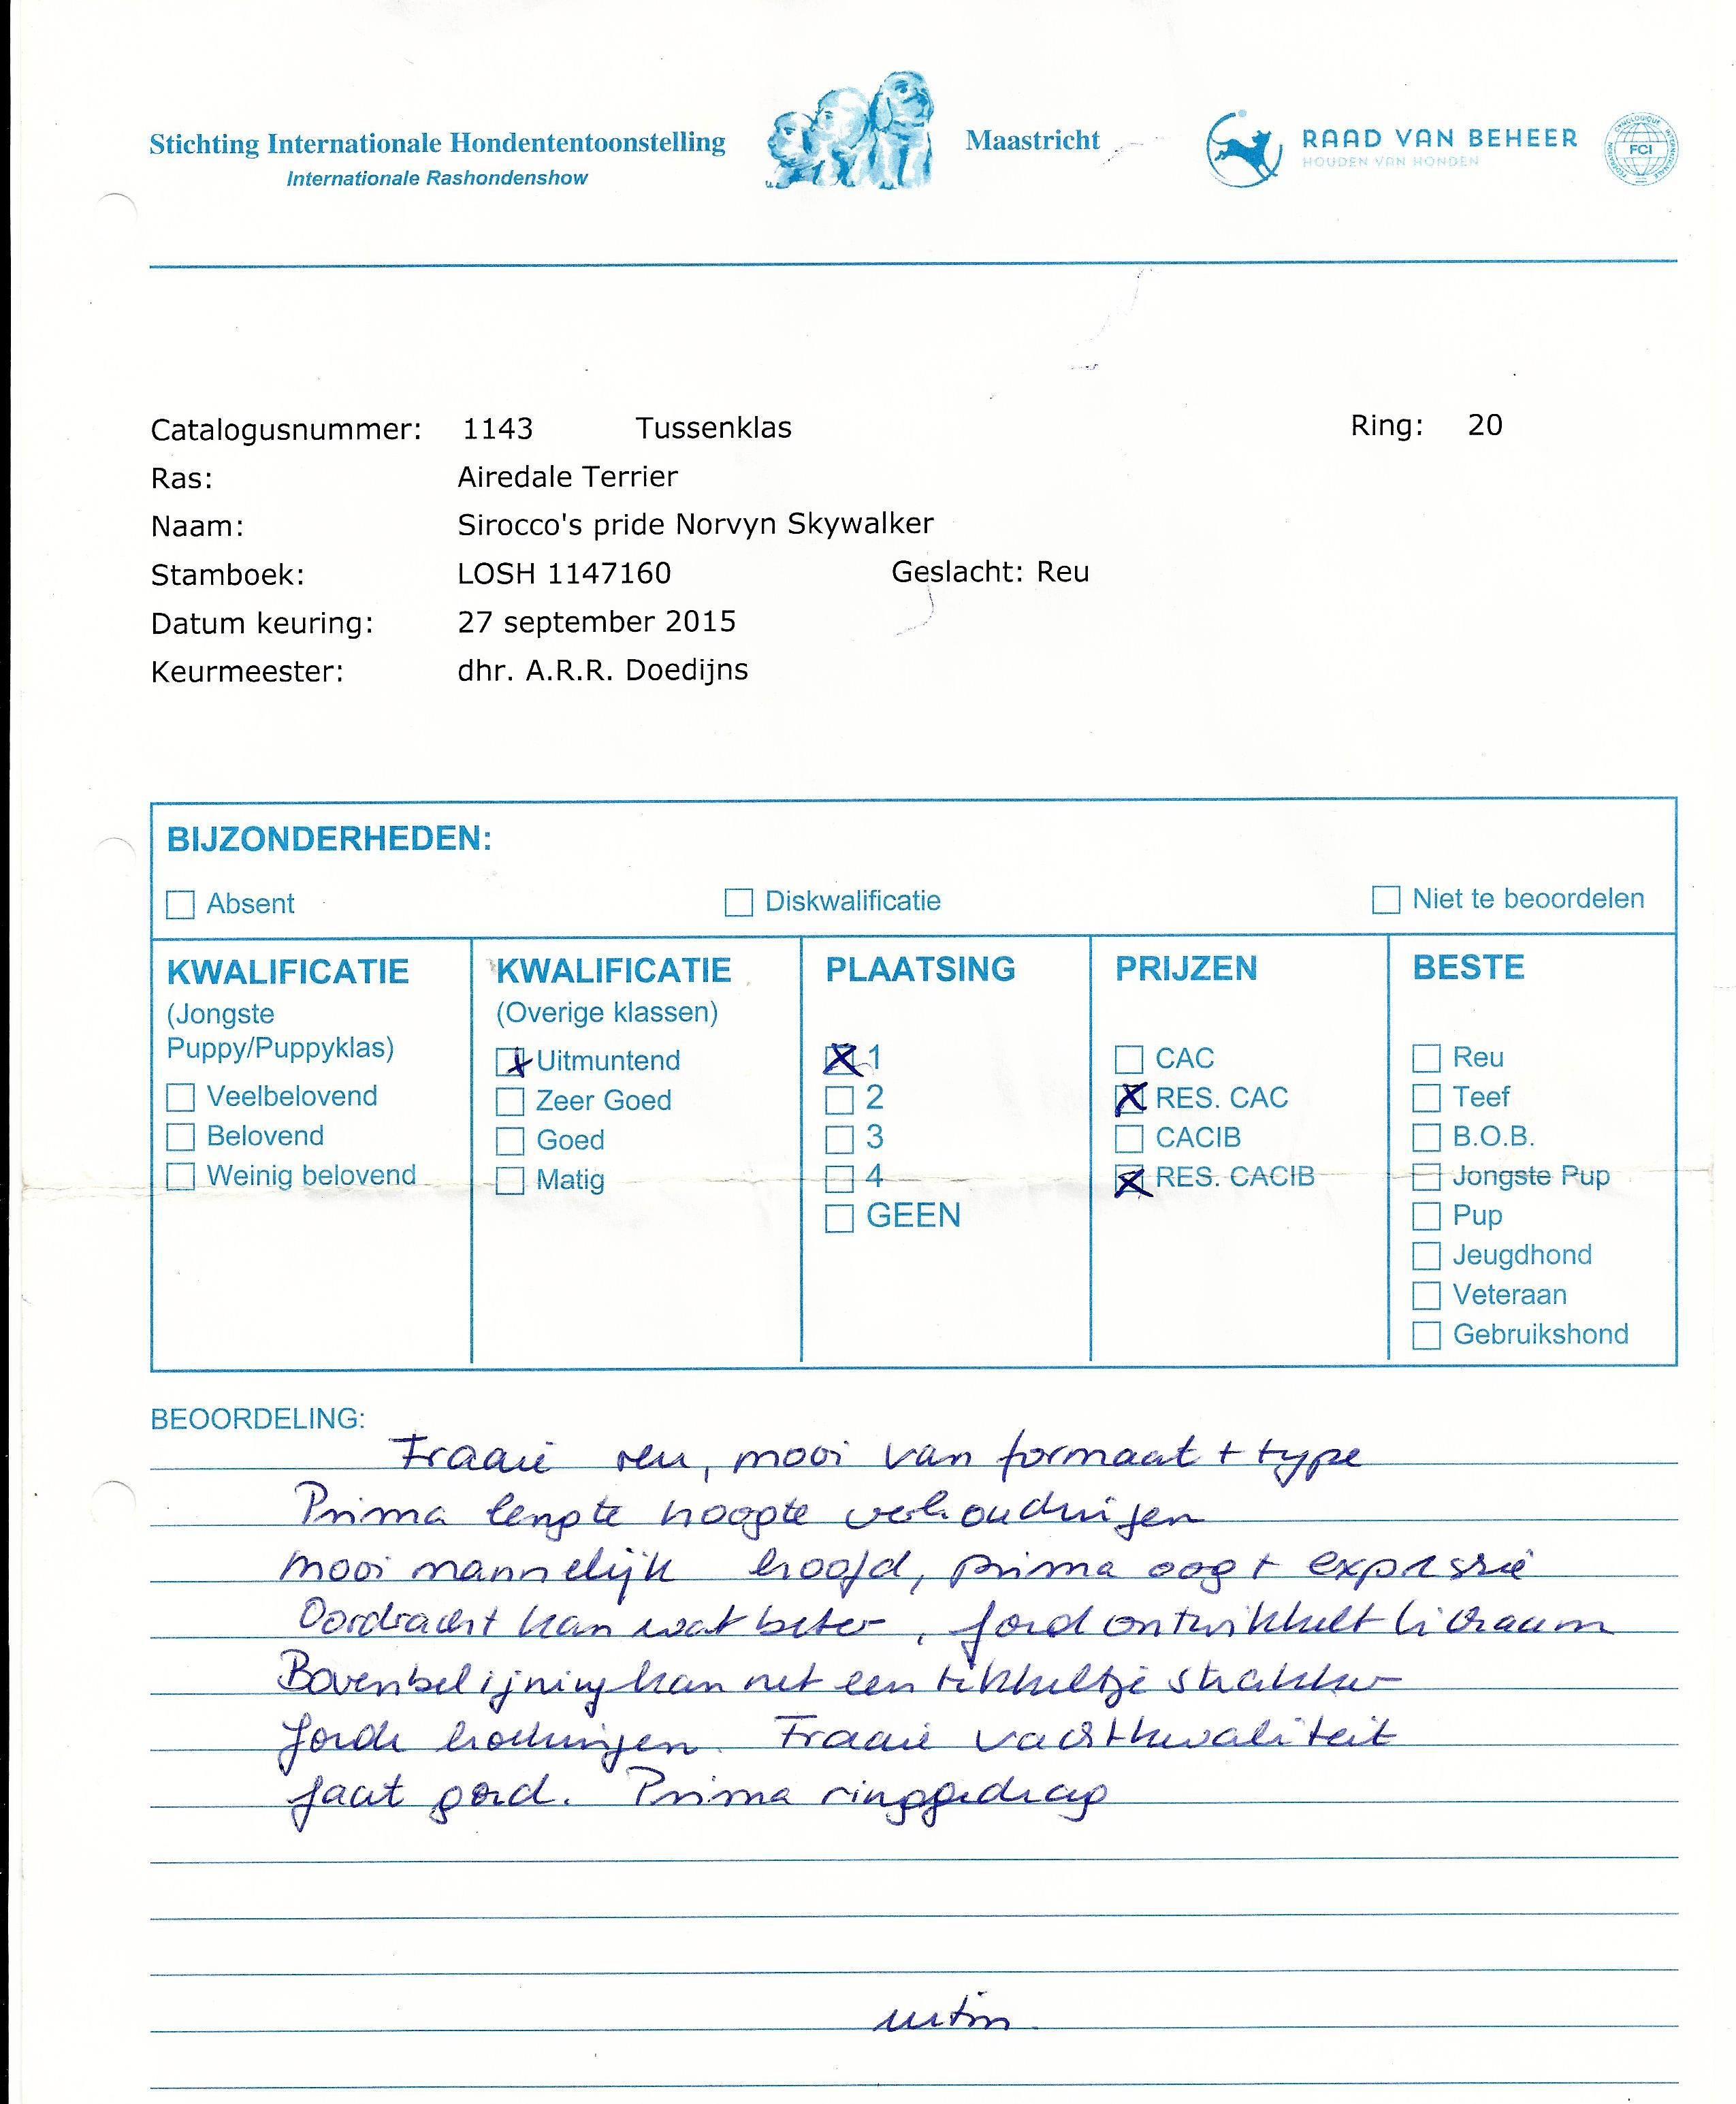 Stichting Internationale Hondententoonstelling
Internationale Rashondenshow
Maastricht
RAAD VAN BEHEER
HOUDEN VAN HONDEN
FCI
Catalogusnummer: 1143 Tussenklas Ring: 20
Ras: Airedale Terrier
Naam: Sirocco's pride Norvyn Skywalker
Stamboek: LOSH 1147160 Geslacht: Reu
Datum keuring: 27 september 2015
Keurmeester: dhr. A.R.R. Doedijns
BIJZONDERHEDEN:
Absent Diskwalificatie Niet te beoordelen
KWALIFICATIE
(Jongste
Puppy/Puppyklas)
Veelbelovend
Belovend
Weinig belovend
KWALIFICATIE
(Overige klassen)
Uitmuntend
Zeer Goed
Goed
Matig
PLAATSING
1
2
3
4
GEEN
PRIJZEN
CAC
RES. CAC
CACIB
RES. CACIB
BESTE
Reu
Teef
B.O.B.
Jongste Pup
Pup
Jeugdhond
Veteraan
Gebruikshond
BEOORDELING:
Fraaie reu, mooi van formaat + type
Prima lengte hoogte verhoudingen
mooi mannelijk hoofd, prima oog + expressie
Oordracht kan wat beter, goed ontwikkelt lichaam
Bovenbelijning kan net een tikkeltje strakker
goede hoekingen. Fraaie vachtkwaliteit
gaat goed. Prima ringgedrag